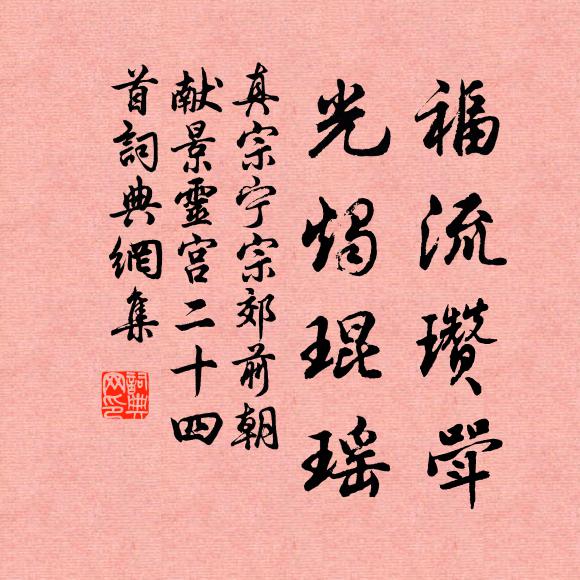 福流瓒斝
光烛琨瑶
真宗宁宗郊前朝
献景靈宫二十四
首詞典網集
詞典网印